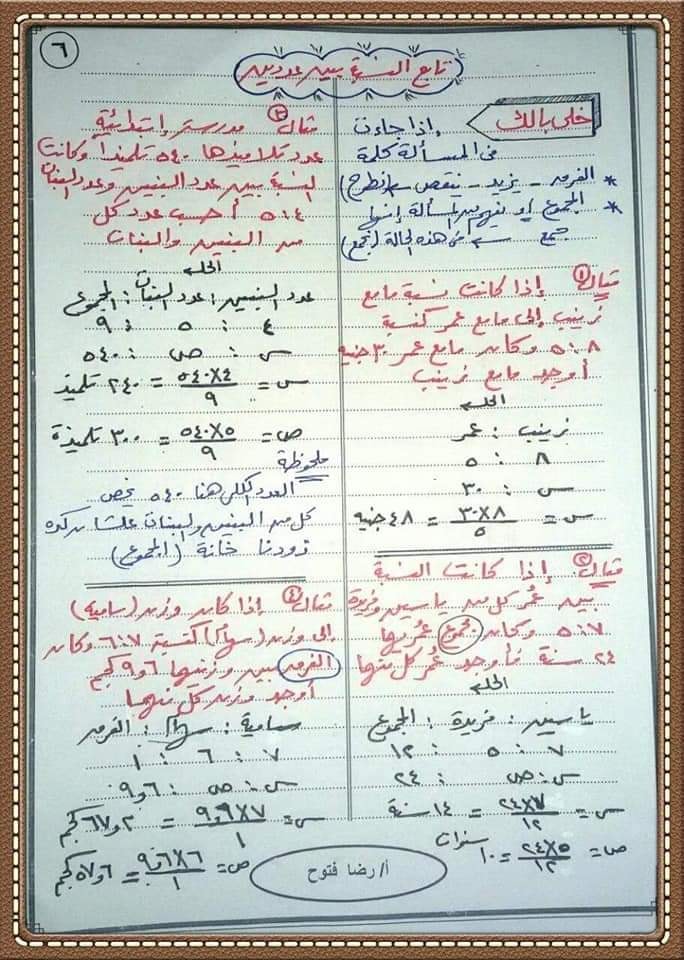 ٦
تابع النسبة بين عددين
خلى بالك
إذا جاءت
فى المسألة كلمة
* الفرق - يزيد - ينقص ← (نطرح)
* المجموع أو نفهم من المسألة إنها
جمع ← فى هذه الحالة (نجمع)
مثال ١ إذا كانت نسبة ما مع
زينب إلى ما مع عمر كنسبة
٨ : ٥ وكان مع عمر ٣٠ جنيه
أوجد ما مع زينب
الحل
زينب : عمر
٨ : ٥
س : ٣٠
س = ٣٠×٨ / ٥ = ٤٨ جنيه
مثال ٢ إذا كانت النسبة
بين عُمر كل من ياسين وفريدة
٧ : ٥ وكان مجموع عمريهما
٢٤ سنة فأوجد عُمر كل منهما
الحل
ياسين : فريدة : المجموع
٧ : ٥ : ١٢
س : ص : ٢٤
س = ٢٤×٧ / ١٢ = ١٤ سنة
ص = ٢٤×٥ / ١٢ = ١٠ سنوات
مثال ٣ مدرسة إبتدائية
عدد تلاميذها ٥٤٠ تلميذاً وكانت
النسبة بين عدد البنين وعدد البنات
٤ : ٥ أحسب عدد كل
من البنين والبنات
الحل
عدد البنين : عدد البنات : المجموع
٤ : ٥ : ٩
س : ص : ٥٤٠
س = ٥٤٠×٤ / ٩ = ٢٤٠ تلميذ
ص = ٥٤٠×٥ / ٩ = ٣٠٠ تلميذة
ملحوظة
العدد الكلى هنا ٥٤٠ يخص
كل من البنين والبنات علشان كده
زودنا خانة (المجموع)
مثال ٤ إذا كان وزن (سامية)
إلى وزن (سهام) كنسبة ٧ : ٦ وكان
الفرق بين وزنيهما ٩٫٦ كجم
أوجد وزن كل منهما
سامية : سهام : الفرق
٧ : ٦ : ١
س : ص : ٩٫٦
س = ٩٫٦×٧ / ١ = ٦٧٫٢ كجم
ص = ٩٫٦×٦ / ١ = ٥٧٫٦ كجم
أ/ رضا فتوح